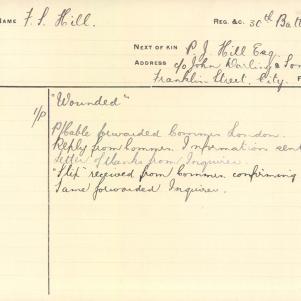 NAME F. S. Hill. REG. &C. 30th Batt
NEXT OF KIN P. J. Hill Esq
ADDRESS c/o John Darling & Son
Franklin Street, City.
"Wounded"
P/Cable forwarded Commrs London.
Reply from Commrs. Information sent
Letter of thanks from Inquirer.
"Slip" received from Commrs. confirming
Same forwarded Inquirer.